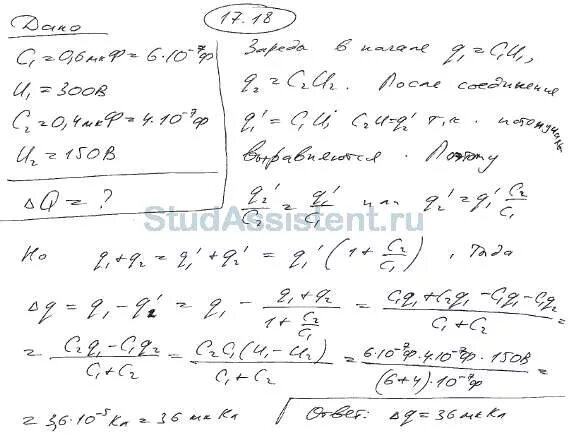 17.18
Дано
C₁=0,6мкФ=6·10⁻⁷Ф
U₁=300В
C₂=0,4мкФ=4·10⁻⁷Ф
U₂=150В
ΔQ=?
Заряды в начале q₁=C₁U₁,
q₂=C₂U₂. После соединение
q₁'=C₁U; C₂U=q₂' т.к. потенциалы
выравняются. Поэтому
q₂'/C₂ = q₁'/C₁ или q₂'=q₁' C₂/C₁
StudAssistent.ru
Но q₁+q₂=q₁'+q₂'=q₁'(1+C₂/C₁), Тогда
Δq=q₁-q₂'=q₁-(q₁+q₂)/(1+C₂/C₁)=(C₁q₁+C₂q₁-C₁q₁-C₁q₂)/(C₁+C₂)=
=(C₂q₁-C₁q₂)/(C₁+C₂)=C₂C₁(U₁-U₂)/(C₁+C₂)=(6·10⁻⁷Ф·4·10⁻⁷·150В)/((6+4)·10⁻⁷Ф)=
=3,6·10⁻⁵Кл=36мкКл
Ответ: Δq=36мкКл